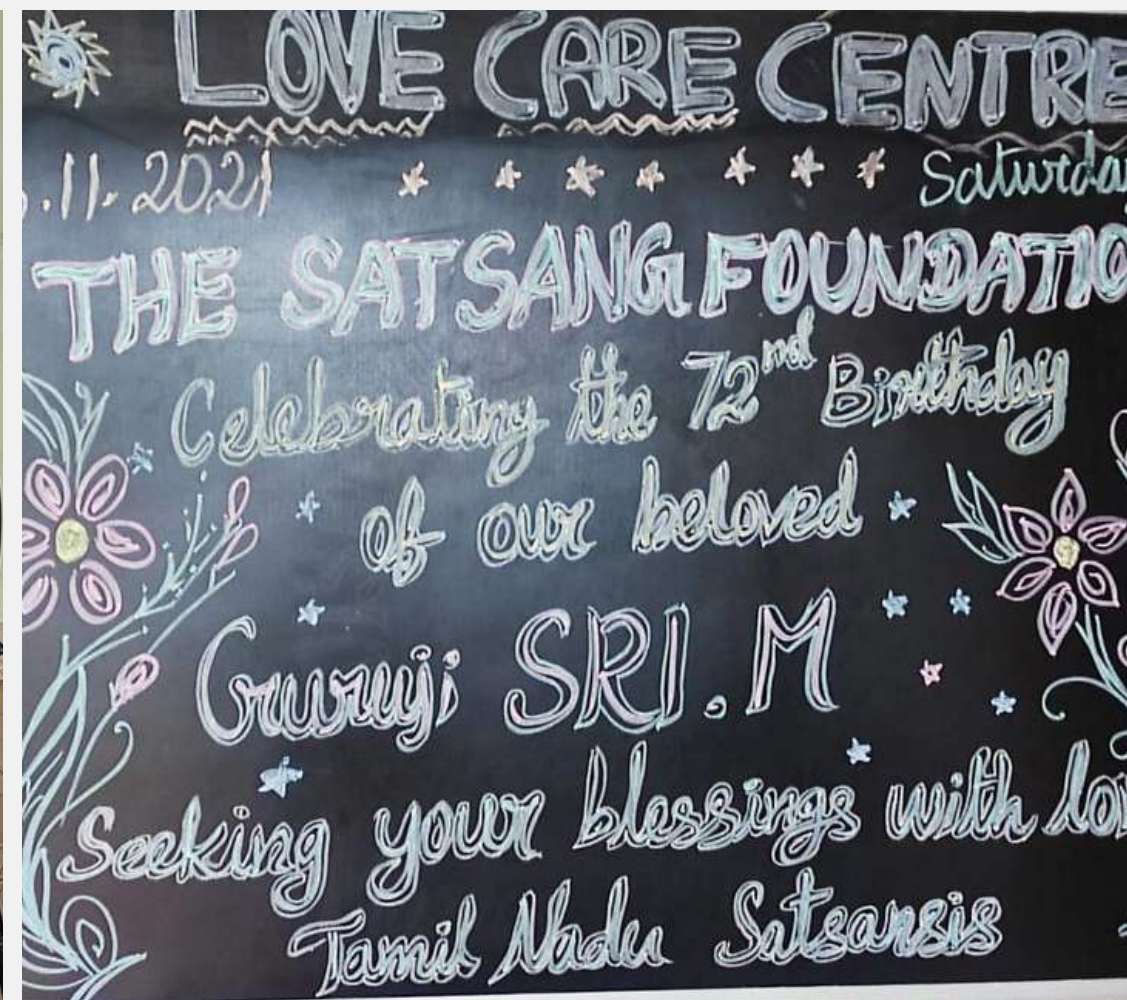 LOVE CARE CENTRE
.11.2021 Saturday
THE SATSANG FOUNDATIO
Celebrating the 72nd Birthday
of our beloved
Guruji SRI.M
Seeking your blessings with lov
Tamil Nadu Satsansis